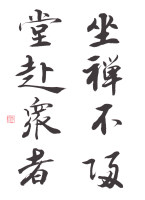 坐禅不帰
堂赴衆者